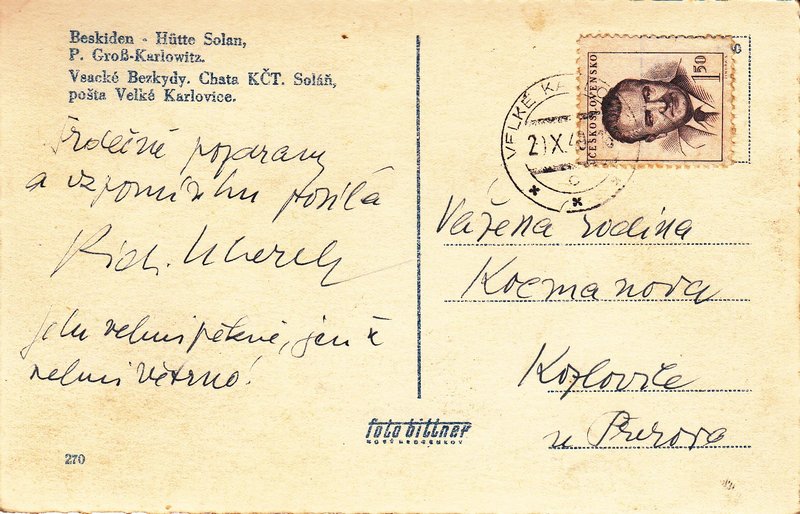 Beskiden - Hütte Solan,
P. Groß-Karlowitz.
Vsacké Bezkydy. Chata KČT. Soláň,
pošta Velké Karlovice.
Srdečné pozdravy
a vzpomínku posílá
Rich.
jdu velmi pěkné, jen
velmi větrno!
270
foto bittner
VELKÉ KA
21X.4
c
ČESKOSLOVENSKO
1.50
Vážená rodina
Kocmanova
Kozlovice
u Přerova